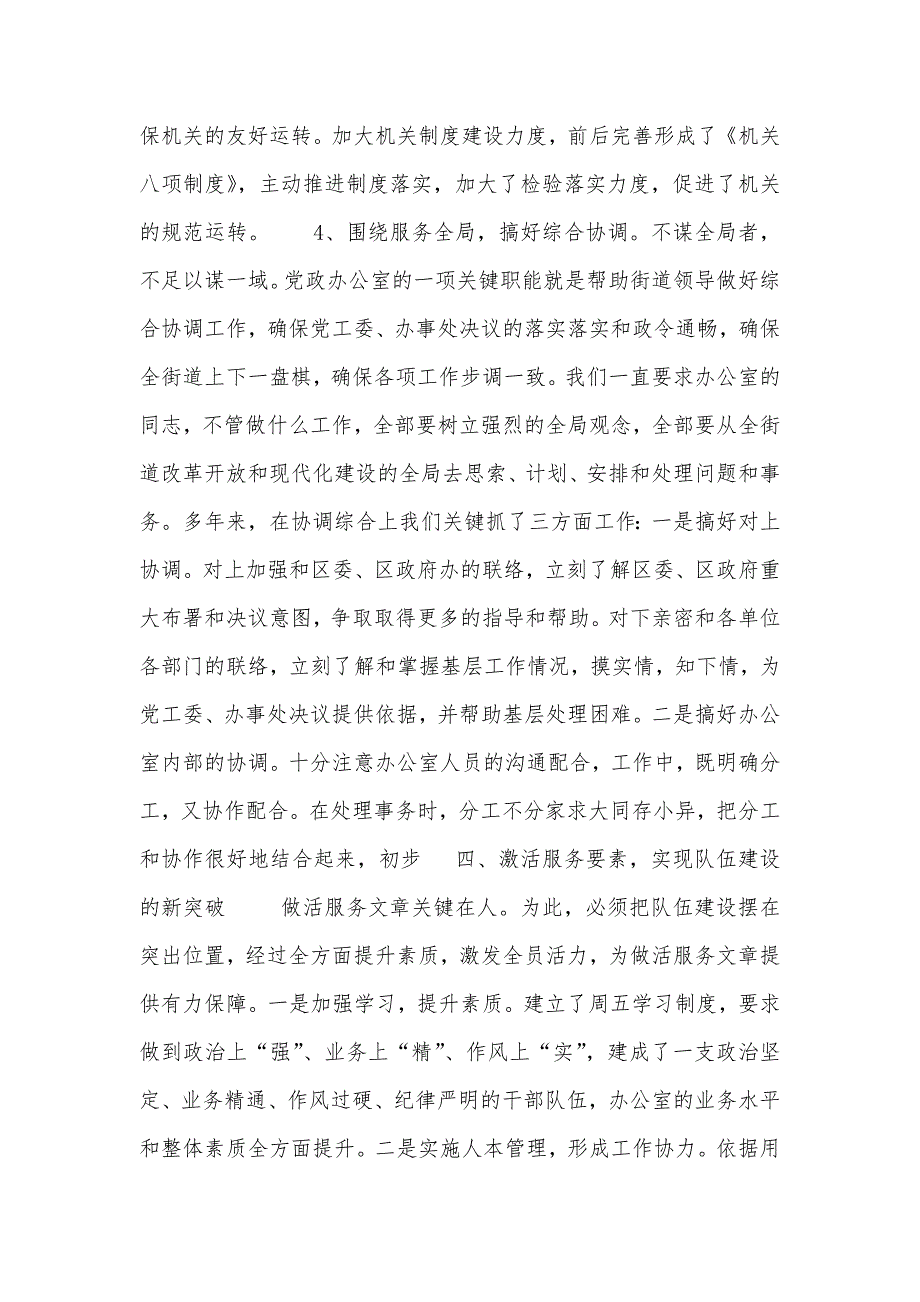 保机关的友好运转。加大机关制度建设力度，前后完善形成了《机关
八项制度》，主动推进制度落实，加大了检验落实力度，促进了机关
的规范运转。 4、围绕服务全局，搞好综合协调。不谋全局者，
不足以谋一域。党政办公室的一项关键职能就是帮助街道领导做好综
合协调工作，确保党工委、办事处决议的落实落实和政令通畅，确保
全街道上下一盘棋，确保各项工作步调一致。我们一直要求办公室的
同志，不管做什么工作，全部要树立强烈的全局观念，全部要从全街
道改革开放和现代化建设的全局去思索、计划、安排和处理问题和事
务。多年来，在协调综合上我们关键抓了三方面工作：一是搞好对上
协调。对上加强和区委、区政府办的联络，立刻了解区委、区政府重
大布署和决议意图，争取取得更多的指导和帮助。对下亲密和各单位
各部门的联络，立刻了解和掌握基层工作情况，摸实情，知下情，为
党工委、办事处决议提供依据，并帮助基层处理困难。二是搞好办公
室内部的协调。十分注意办公室人员的沟通配合，工作中，既明确分
工，又协作配合。在处理事务时，分工不分家求大同存小异，把分工
和协作很好地结合起来，初步 四、激活服务要素，实现队伍建设
的新突破 做活服务文章关键在人。为此，必须把队伍建设摆在
突出位置，经过全方面提升素质，激发全员活力，为做活服务文章提
供有力保障。一是加强学习，提升素质。建立了周五学习制度，要求
做到政治上“强”、业务上“精”、作风上“实”，建成了一支政治坚
定、业务精通、作风过硬、纪律严明的干部队伍，办公室的业务水平
和整体素质全方面提升。二是实施人本管理，形成工作协力。依据用